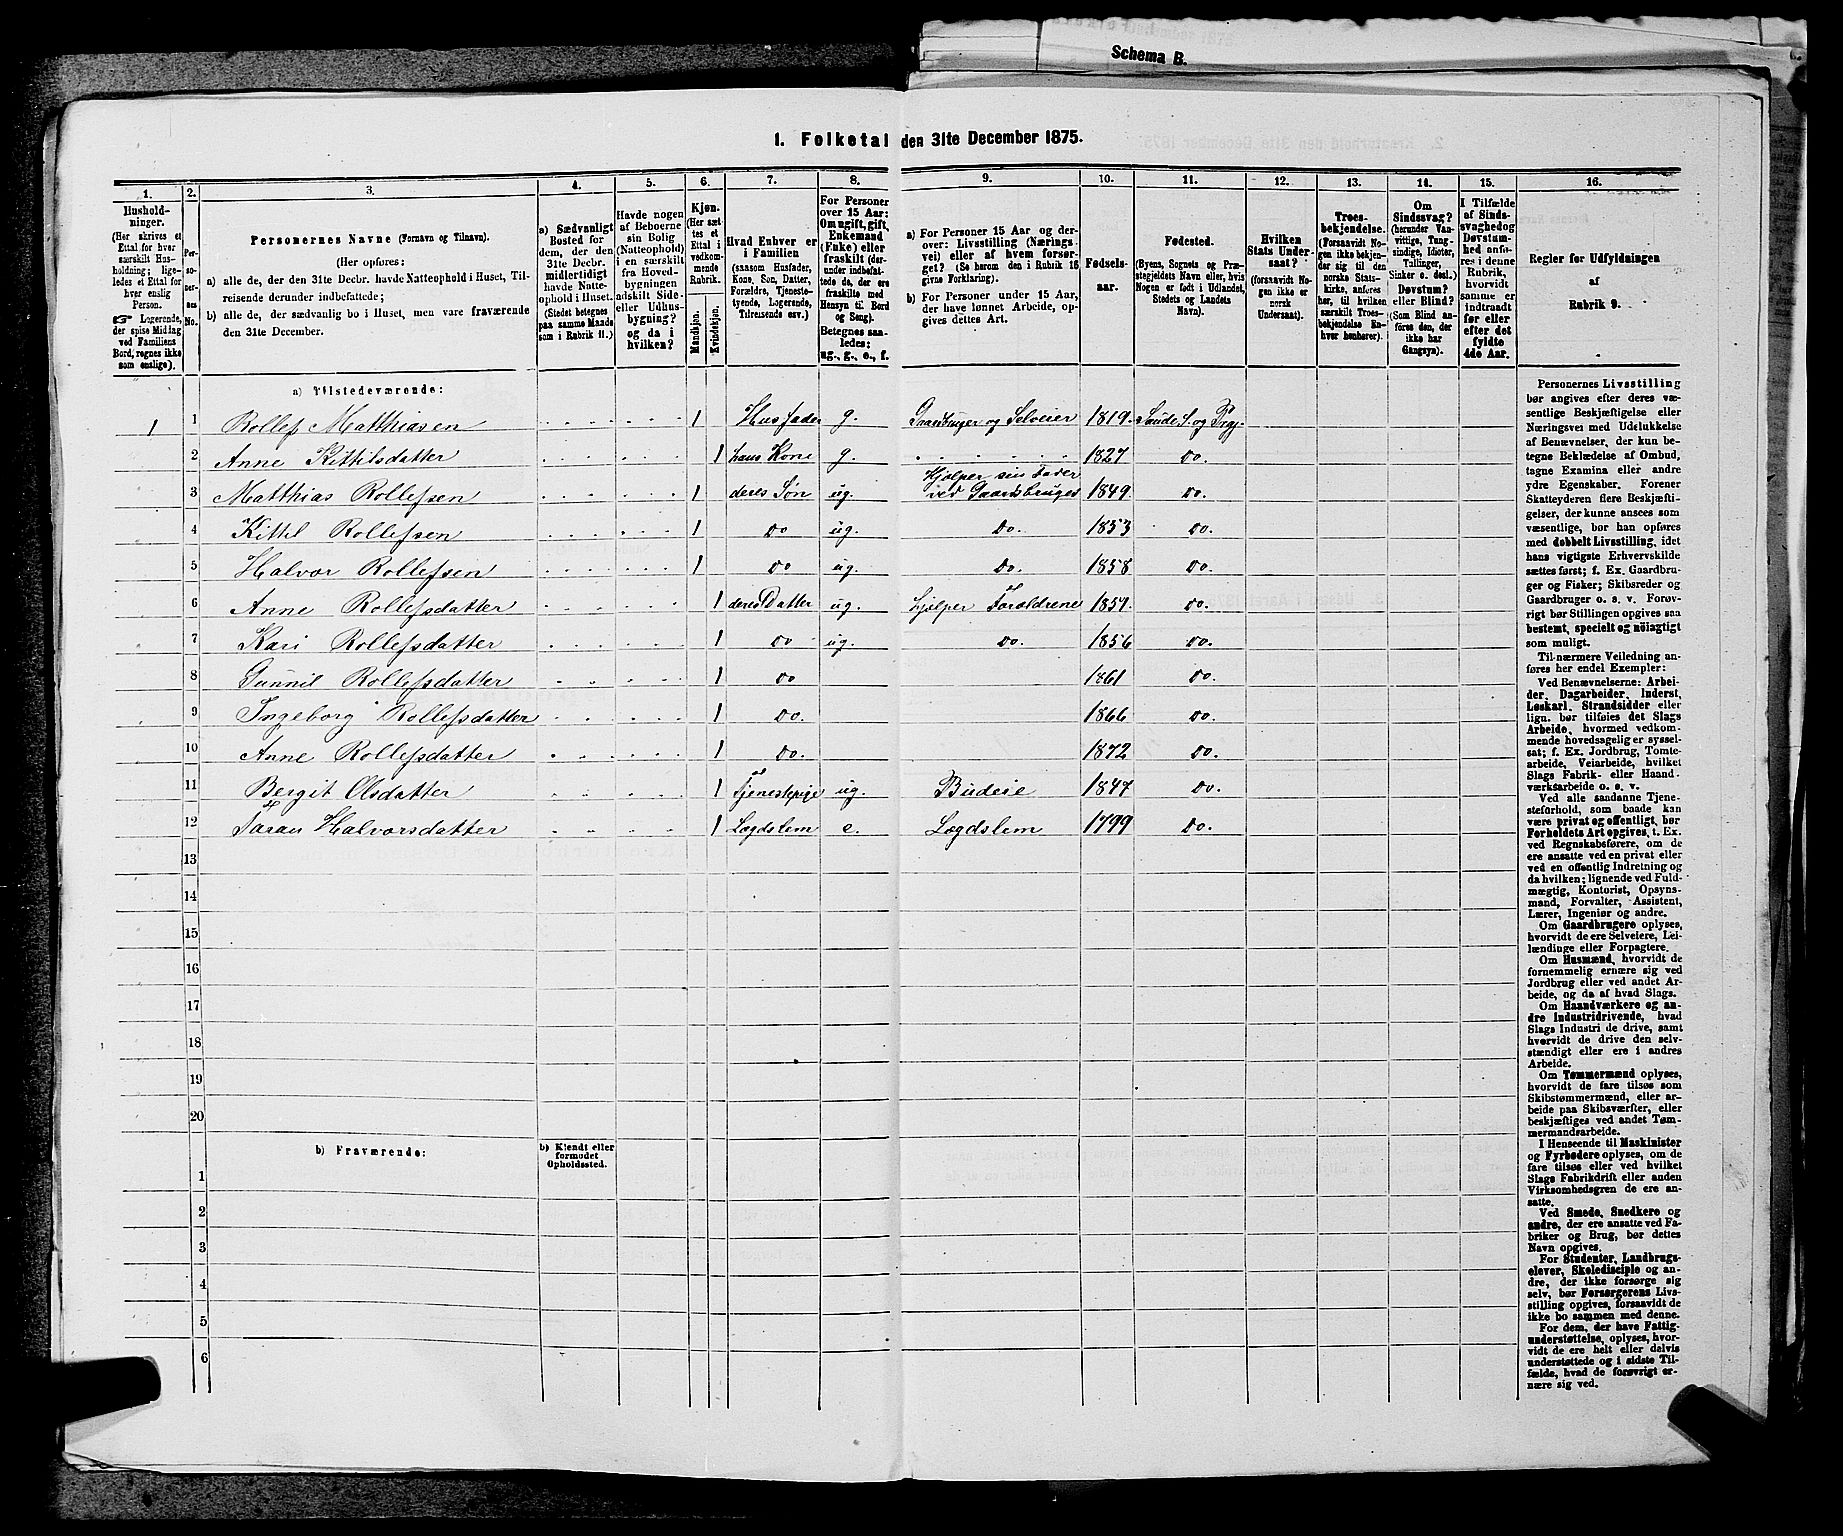 Schema B.
1. Folketal den 31te December 1875.
1. 2. 3. 4. 5. 6. 7. 8. 9. 10. 11. 12. 13. 14. 15. 16.
Husholdninger. (Her skrives et Ettal for hver særskilt Husholdning; ligeledes et Ettal for hver enslig Person. ☞ Logerende, der spise Middag ved Familiens Bord, regnes ikke som enslige).
Personernes No.
Personernes Navne (Fornavn og Tilnavn).
(Her opføres:
a) alle de, der den 31te Decbr. havde Natteophold i Huset, Tilreisende derunder indbefattede;
b) alle de, der sædvanlig bo i Huset, men vare fraværende den 31te December.
a) Sædvanligt Bosted for dem, der den 31te Decbr. midlertidigt havde Natteophold i Huset. (Stedet betegnes paa samme Maade som i Rubrik 11.)
Havde nogen af Beboerne sin Bolig (Natteophold) i en særskilt fra Hovedbygningen adskilt Side- eller Udhusbygning? og da i hvilken?
Kjøn. (Her sættes et Ettal i vedkommende Rubrik.
Mandskjøn. Kvindekjøn.
Hvad Enhver er i Familien (saasom Husfader, Kone, Søn, Datter, Forældre, Tjenestetyende, Logerende, Tilreisende osv.)
For Personer over 15 Aar: Om ugift, gift, Enkemand (Enke) eller fraskilt (derunder indbefattede de, der ere fraskilte med Hensyn til Bord og Seng). Betegnes saaledes: ug., g., e., f.
a) For Personer 15 Aar og derover: Livsstilling (Næringsvei) eller af hvem forsørget? (Se herom den i Rubrik 16 givne Forklaring).
b) For Personer under 15 Aar, der have lønnet Arbeide, opgives dettes Art.
Fødselsaar.
Fødested. (Byens, Sognets og Præstegjeldets Navn eller, hvis Nogen er født i Udlandet, Stedets og Landets Navn).
Hvilken Stats Undersaat? (forsaavidt Nogen ikke er norsk Undersaat).
Troesbekjendelse. (Forsaavidt Nogen ikke bekjender sig til den norske Statskirke, anføres her, til hvilken særskilt Troesbekjendelse Enhver henhører).
Om Sindssvag? (herunder Vanvittige, Tungsindige, Idioter, Tullinger, Sinker o. desl.) Døvstum? eller Blind? (Som Blind anføres den, der ikke har Gangsyn).
I Tilfælde af Sindssvaghed og Døvstumhed anføres i denne Rubrik, hvorvidt samme er indtraadt før eller efter det fyldte 4de Aar.
Regler for Udfyldningen af Rubrik 9.
a) Tilstedeværende:
1 1 Rollef Matthiasen 1 Husfader g. Gaardbruger og Selveier 1819. Saude S. og Prgj.
2 Anne Kittilsdatter 1 hans Kone g. 1827 Do.
3 Matthias Rollefsen 1 deres Søn ug. Hjælper sin Fader ved Gaardsbruget 1849. Do.
4 Kittil Rollefsen 1 Do ug. Do. 1853 Do.
5 Halvor Rollefsen 1 Do ug. Do. 1858 Do.
6 Anne Rollefsdatter 1 deres Datter ug. hjælper Forældrene 1851. Do.
7 Kari Rollefsdatter 1 Do ug. Do. 1856 Do.
8 Gunnil Rollefsdatter 1 Do 1861 Do.
9 Ingeborg Rollefsdatter 1 Do. 1866 Do.
10 Anne Rollefsdatter 1 Do. 1872 Do.
11 Bergit Olsdatter 1 Tjenestepige ug. Budeie 1847 Do.
12 Taran Halvorsdatter 1 Lægdslem e. Lægdslem 1799 Do.
13
14
15
16
17
18
19
20
b) Fraværende: b) Kjendt eller formodet Opholdssted.
1
2
3
4
5
6
Personernes Livsstilling
bør angives efter deres væ-
sentlige Beskjæftigelse eller
Næringsvei med Udelukkelse
af Benævnelser, der kun be-
tegne Beklædelse af Ombud,
tagne Examina eller andre
ydre Egenskaber. Forener
Skatteyderen flere Beskjæfti-
gelser, der kunne ansees som
væsentlige, bør han opføres
med dobbelt Livsstilling, idet
hans vigtigste Erhvervskilde
sættes først; f. Ex. Gaardbru-
ger og Fisker; Skibsreder og
Gaardbruger o. s. v. Forøv-
rigt bør Stillingen opgives saa
bestemt, specielt og nöiagtigt
som muligt.
Til nærmere Veiledning an-
føres her endel Exempler:
Ved Benævnelserne: Arbei-
der, Dagarbeider, Inderst,
Løskarl, Strandsidder eller
lign. bør tilføies det Slags
Arbeide, hvormed vedkom-
mende hovedsagelig er syssel-
sat; f. Ex. Jordbrug, Tomte-
arbeide, Veiarbeide, hvilket
Slags Fabrik- eller Haand-
værksarbeide o. s. v.
Ved alle saadanne Tjene-
steforhold, som baade kan
være privat og offentligt, bør
Forholdets Art opgives, t. Ex.
ved Regnskabsførere, om de
ere ansatte ved en privat eller
ved en offentlig Indretning og
da hvilken; lignende ved Fuld-
mægtig, Kontorist, Opsyns-
mand, Forvalter, Assistent,
Lærer, Ingeniør og andre.
Om Gaardbrugere oplyses,
hvorvidt de ere Selveiere, Lei-
lændinge eller Forpagtere.
Om Husmænd, hvorvidt de
fornemmelig ernære sig ved
Jordbrug eller ved andet Ar-
beide, og da af hvad Slags.
Om Haandværkere og an-
dre Industridrivende, hvad
Slags Industri de drive, samt
hvorvidt de drive den selv-
stændigt eller ere i andres
Arbeide.
Om Tømmermænd oplyses,
hvorvidt de fare tilsøs som
Skibstømmermænd, eller ar-
beide paa Skibsværfter, eller
beskjæftiges ved andet Tøm-
mermandsarbeide.
I Henseende til Maskinister
og Fyrbødere oplyses, om de
fare tilsøs eller ved hvilket
Slags Fabrikdrift eller anden
Virksomhedsgren de ere an-
satte.
Ved Smede, Snedkere og
andre, der ere ansatte ved Fa-
briker og Brug, bør dettes
Navn opgives.
For Studenter, Landbrugs-
elever, Skoledisciple og an-
dre, der ikke forsørge sig
selv, bør Forsørgerens Livs-
stilling opgives, forsaavidt de
ikke bo sammen med denne.
For dem, der have Fattig-
understøttelse, oplyses, hvor-
vidt de ere helt eller delvis
understøttede og i sidste Til-
fælde, hvad de forøvrigt er-
nære sig ved.